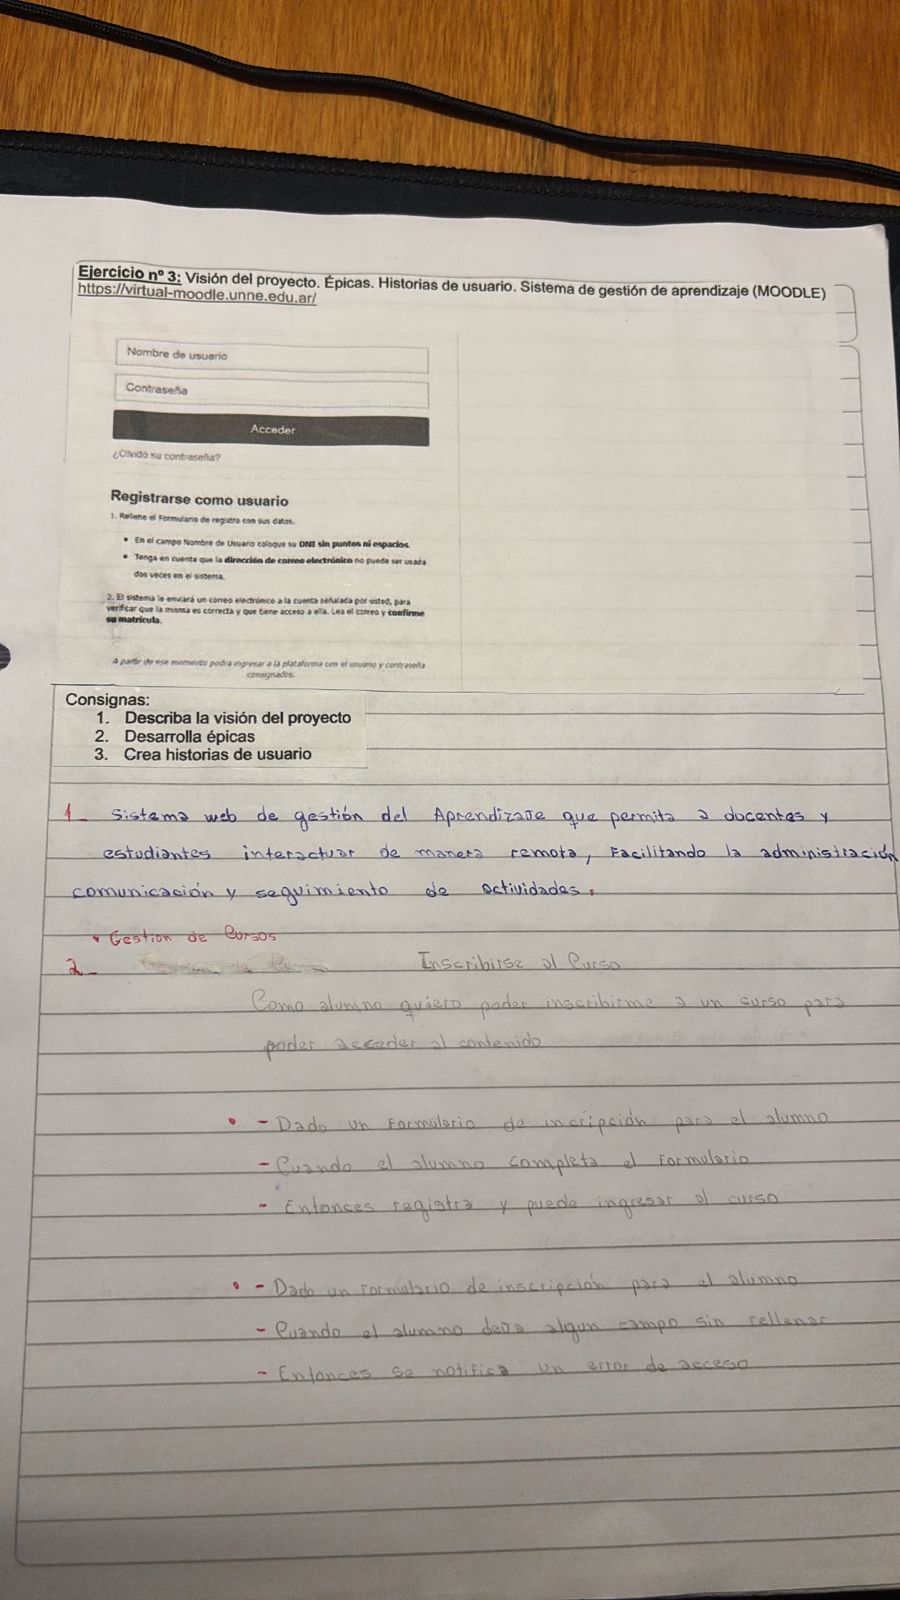 Ejercicio nº 3: Visión del proyecto. Épicas. Historias de usuario. Sistema de gestión de aprendizaje (MOODLE)
https://virtual-moodle.unne.edu.ar/
Nombre de usuario
Contraseña
Acceder
¿Olvidó su contraseña?
Registrarse como usuario
1. Rellene el Formulario de registro con sus datos.
• En el campo Nombre de Usuario coloque su DNI sin puntos ni espacios.
• Tenga en cuenta que la dirección de correo electrónico no puede ser usada
dos veces en el sistema.
2. El sistema le enviará un correo electrónico a la cuenta señalada por usted, para
verificar que la misma es correcta y que tiene acceso a ella. Lea el correo y confirme
su matrícula.
A partir de ese momento podrá ingresar a la plataforma con el usuario y contraseña
consignados.
Consignas:
1. Describa la visión del proyecto
2. Desarrolla épicas
3. Crea historias de usuario
1- Sistema web de gestión del Aprendizaje que permita a docentes y
estudiantes interactuar de manera remota, Facilitando la administración
comunicación y seguimiento de actividades.
• Gestion de Cursos
2- Inscribirse al Curso
Como alumno quiero poder inscribirme a un curso para
poder acceder al contenido
• - Dado un Formulario de incripción para el alumno
- Cuando el alumno completa el Formulario
- Entonces registra y puede ingresar al curso
• - Dado un Formulario de inscripción para el alumno
- Cuando el alumno deja algun campo sin rellenar
- Entonces se notifica un error de acceso